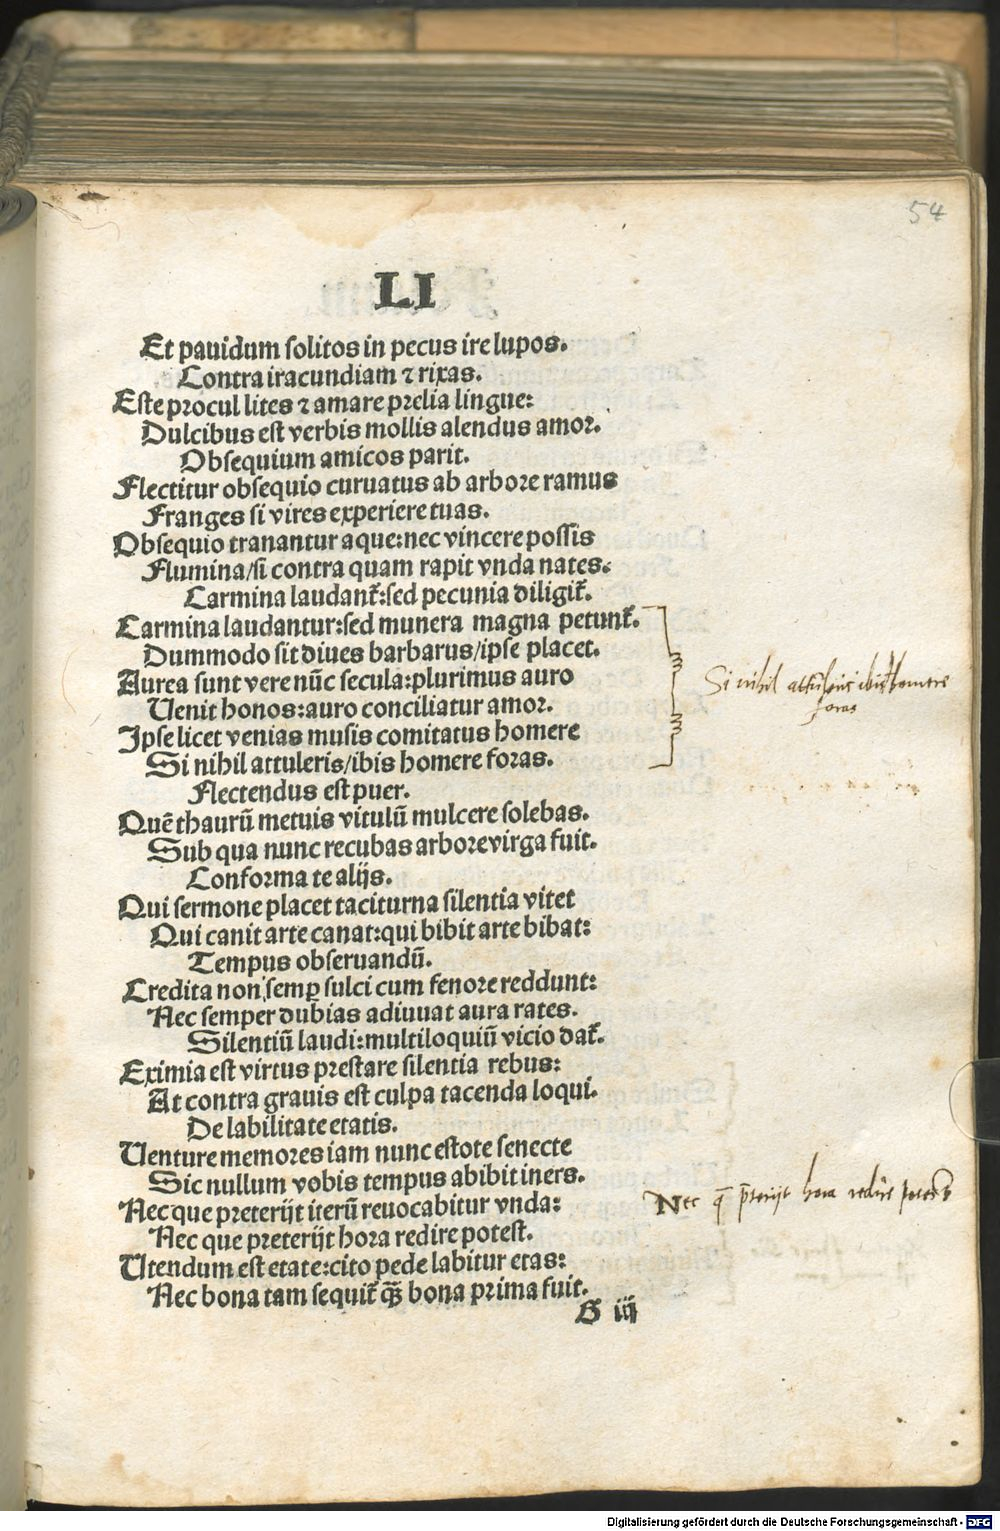 54
LI
Et pauidum solitos in pecus ire lupos.
Contra iracundiam ⁊ rixas.
Este procul lites ⁊ amare prelia lingue:
Dulcibus est verbis mollis alendus amor.
Obsequium amicos parit.
Flectitur obsequio curuatus ab arbore ramus
Franges si vires experiere tuas.
Obsequio tranantur aque: nec vincere possis
Flumina/si contra quam rapit vnda nates.
Carmina laudant̃: sed pecunia diligit̃.
Carmina laudantur: sed munera magna petunt̃.
Dummodo sit diues barbarus/ipse placet.
Aurea sunt vere nūc secula: plurimus auro
Uenit honos: auro conciliatur amor.
Ipse licet venias musis comitatus homere
Si nihil attuleris/ibis homere foras.
Si nihil attuleris ibis homere
foras
Flectendus est puer.
Quē thaurū metuis vitulū mulcere solebas.
Sub qua nunc recubas arbore virga fuit.
Conforma te alijs.
Qui sermone placet taciturna silentia vitet
Qui canit arte canat: qui bibit arte bibat:
Tempus obseruandū.
Credita non semꝑ sulci cum fenore reddunt:
Nec semper dubias adiuuat aura rates.
Silentiū laudi: multiloquiū vicio dat̃.
Eximia est virtus prestare silentia rebus:
At contra grauis est culpa tacenda loqui.
De labilitate etatis.
Uenture memores iam nunc estote senecte
Sic nullum vobis tempus abibit iners.
Nec que preterijt iterū reuocabitur vnda:
Nec q̄ p̄terijt hora redire potest
Nec que preterijt hora redire potest.
Utendum est etate: cito pede labitur etas:
Nec bona tam sequit̃ q̄ȝ bona prima fuit.
B iij
Digitalisierung gefördert durch die Deutsche Forschungsgemeinschaft - DFG